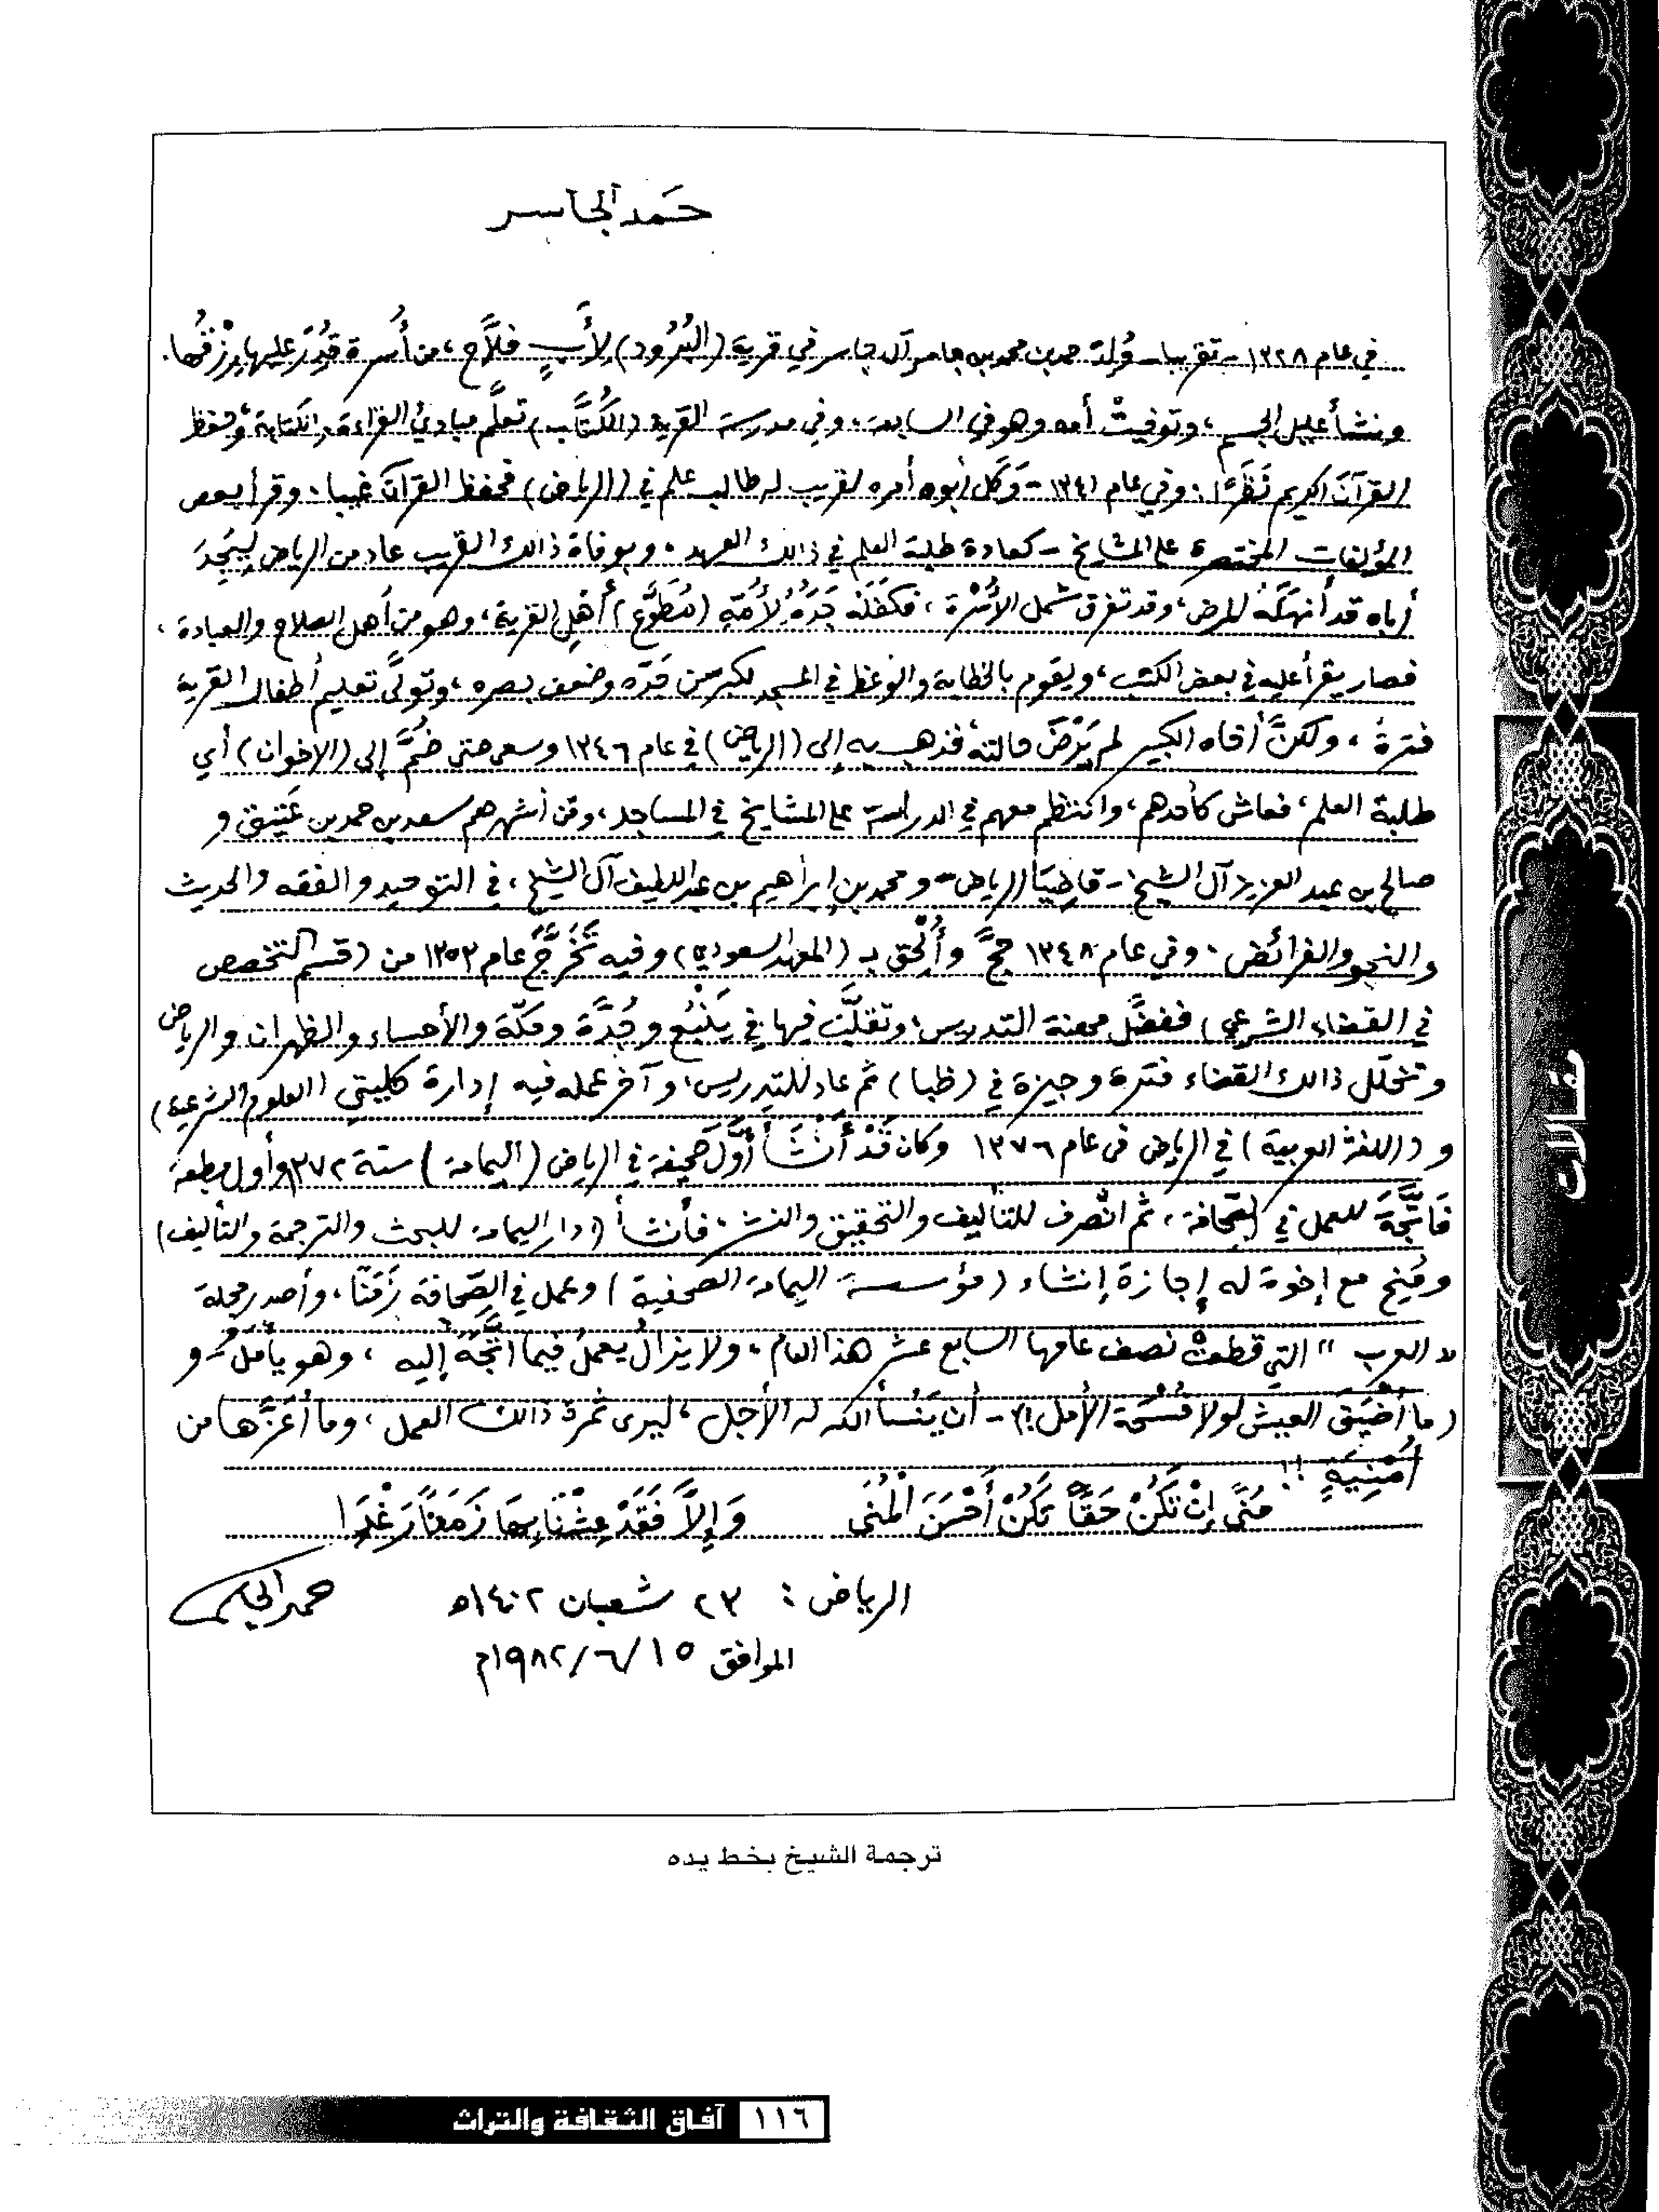 حَمد الجاسر
في عام ١٣٢٨ - تقريبا - وُلِدَ حمد بن محمد بن جاسر آل جاسر في قرية (البُرُود) لِأَبٍ فلَّاح، من أُسرة قُدِرَ عليها رِزْقُها.
ونشأ عليل الجسم، وتوفيتْ أمه وهو في السابعة، وفي مدرسة القرية (الكُتَّاب) تعلَّم مبادئ القراءة والكتابة، وحفظ
القرآن الكريم نَظَرًا. وفي عام ١٣٤١ - وَكَلَ أبوه أمره لقريب له طالب علم في (الرياض) فحفظ القرآن غيبا. وقرأ بعض
المؤلفات المختصرة على المشايخ - كعادة طلبة العلم في ذالك العهد. وبوفاة ذالك القريب عاد من الرياض لِيَجِدَ
أباه قد أنهكَهُ المرض، وقد تفرق شمل الأُسْرة، فكفَلَه جَدُّهُ لِأُمِّهِ (مُطَوَّع) أهْلِ القرية، وهو من أهل الصلاح والعبادة،
فصار يقرأ عليه في بعض الكتب، ويقوم بالخطابة والوعظ في المسجد لكبر سن جَدِّه وضعف بصره، وتولَّى تعليم أطفال القرية
فترةً، ولكنَّ أخاه الكبير لم يَرْضَ حالته، فذهب به إلى (الرياض) في عام ١٣٤٦ وسعى حتى ضُمَّ إلى (الإخوان) أي
طلبة العلم، فعاش كأحدهم، وانتظم معهم في الدراسة على المشايخ في المساجد، ومن أشهرهم سعد بن حمد بن عَتِيق و
صالح بن عبد العزيز آل الشيخ - قاضِيَا الرياض - ومحمد بن إبراهيم بن عبد اللطيف آل الشيخ، في التوحيد والفقه والحديث
والنحو والفرائض. وفي عام ١٣٤٨ حجَّ وأُلْحِقَ بـ (المعهد السعودي) وفيه تَخَرَّجَ عام ١٣٥٣ من (قسم التخصص
في القضاء الشرعي) ففضَّل مهنة التدريس، وتقلَّبَ فيها في يَنْبُع وجُدَّة ومكّة والأحساء والظهران والرياض
وتخلّل ذالك القضاء فترة وجيزة في (ظبا) ثم عاد للتدريس، وآخر عمله فيه إدارة كليتي (العلوم الشرعية)
و (اللغة العربية) في الرياض في عام ١٣٧٦ وكان قَدْ أَنْشَأَ أوَّلَ صحيفة في الرياض (اليمامة) سنة ١٣٧٢ وأول مطبعة
فَاتَّجَهَ للعمل في الصِّحافة، ثم انْصرف للتأليف والتحقيق والنشر، فأنشأ (دار اليمامة للبحث والترجمة والتأليف)
ومُنِحَ مع إخوة له إجازة إنشاء (مؤسسة اليمامة الصحفية) وعمل في الصِّحافة زَمَنًا، وأصدر مجلة
"العرب" التي قطعتْ نصف عامها السابع عشر هذا العام. ولا يزالُ يعملُ فيما اتَّجَهَ إليه، وهو يأمُل - و
(ما أَضْيَقَ العيش لولا فُسْحَة الأمل!) - أن يَنْسأ الله له الأجل، ليرى ثمرة ذالك العمل، وما أعَزَّها من
أُمْنِيَةٍ!!
مُنًى إِنْ تَكُنْ حَقًّا تَكُنْ أَحْسَنَ الْمُنَى وَإِلَّا فَقَدْ عِشْنَا بِهَا زَمَنًا رَغْدَا
الرياض: ٢٣ شعبان ١٤٠٢هـ حمد الجاسر
الموافق ١٥/٦/١٩٨٢م
ترجمة الشيخ بخط يده
مقالات
١١٦ آفاق الثقافة والتراث